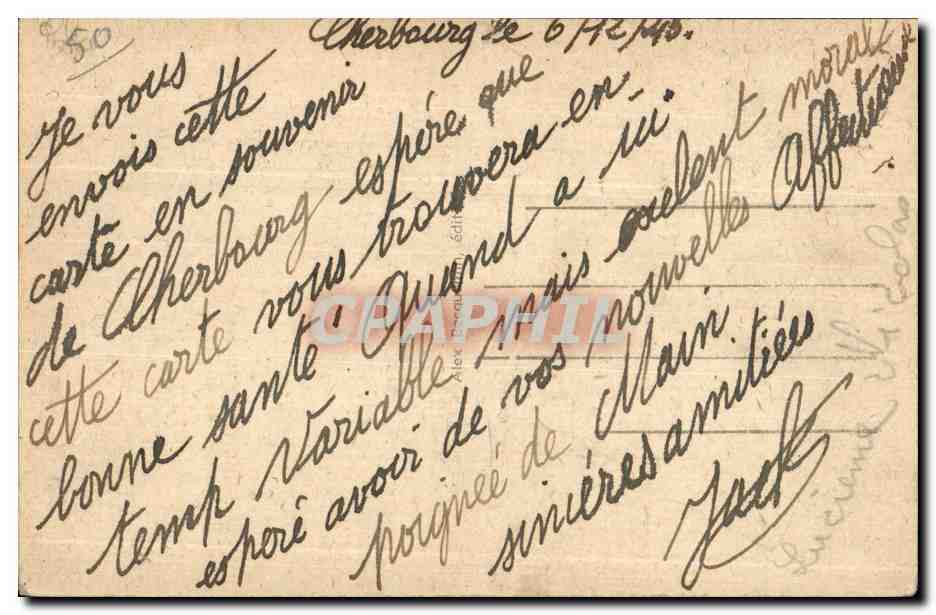 50
Cherbourg le 6/12/45.
Je vous
envois cette
carte en souvenir
de Cherbourg espére que
cette carte vous trouvera en
bonne santé. Quand a ici
temp Variable mais exelent moral
esperé avoir de vos nouvelles Affectueuse
poignée de Main
siniéres amitiées
Jack
Alex. édit
CPAPHIL
Nicolas